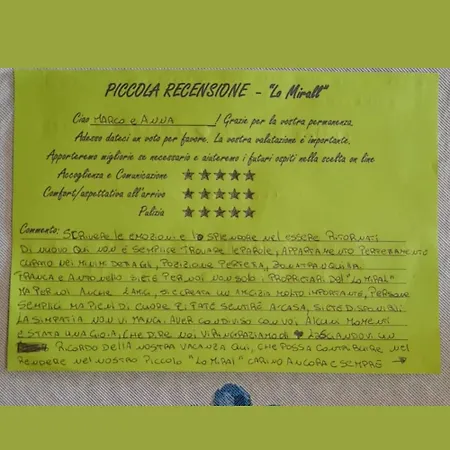 PICCOLA RECENSIONE - "Lo Mirall"
Ciao MARCO e ANNA ! Grazie per la vostra permanenza.
Adesso dateci un voto per favore. La vostra valutazione è importante.
Apporteremo migliorie se necessario e aiuteremo i futuri ospiti nella scelta on line
Accoglienza e Comunicazione ★★★★★
Comfort/aspettativa all'arrivo ★★★★★
Pulizia ★★★★★
Commento: SCRIVERE LE EMOZIONI E LO SPLENDORE NEL ESSERE RITORNATI
DI NUOVO QUI NON È SEMPLICE TROVARE LE PAROLE, APPARTAMENTO PERFETTAMENTO
CURATO NEI MINIMI DETTAGLI, POSIZIONE PERFETTA, ZONA TRANQUILLA
FRANCA E ANTONELLO SIETE PER NOI NON SOLO I PROPRIETARI DEL "LO MIRAL"
MA PER NOI ANCHE AMICI, SI È CREATA UN AMICIZIA MOLTO IMPORTANTE, PERSONE
SEMPLICI MA PIENI DI CUORE CI FATE SENTIRE A CASA, SIETE DISPONIBILI
LA SIMPATIA NON VI MANCA. AVER CONDIVISO CON VOI ALCUNI MOMENTI
È STATA UNA GIOIA, CHE DIRE NOI VI RINGRAZIAMO DI LASCIANDOVI UN
RICORDO DELLA NOSTRA VACANZA QUI, CHE POSSA CONTRIBUIRE NEL
RENDERE NEL NOSTRO PICCOLO "LO MIRAL" CARINO ANCORA E SEMPRE →